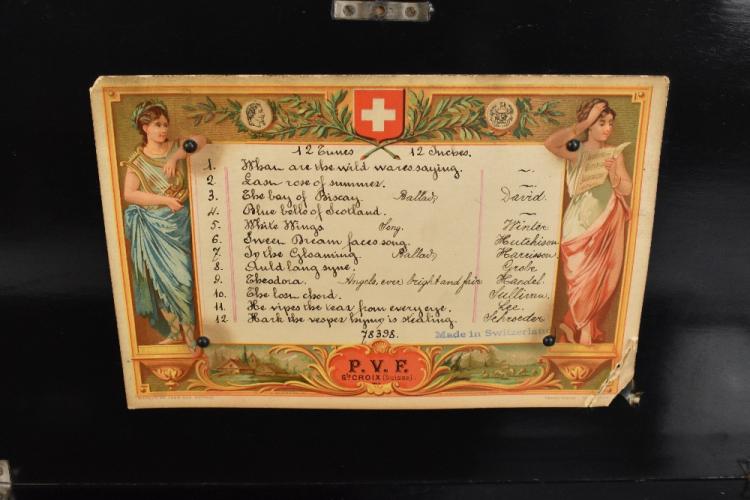 12 Tunes 12 Inches.
1. What are the wild waves saying. ~
2. Last rose of summer. ~
3. The bay of Biscay. Ballad David
4. Blue bells of Scotland. ~
5. White Wings Song. Winter
6. Sweet Dream faces song. Hutchison
7. In the Gloaming. Ballad Harrisson
8. Auld lang syne. Grobe
9. Theodora. Angels, ever bright and fair Handel
10. The lost chord. Sullivan
11. He vipes the tear from every eye. Lee
12. Hark the vesper hymn is stealing. Schroeder
78398.
Made in Switzerland
P. V. F.
Ste CROIX (Suisse).